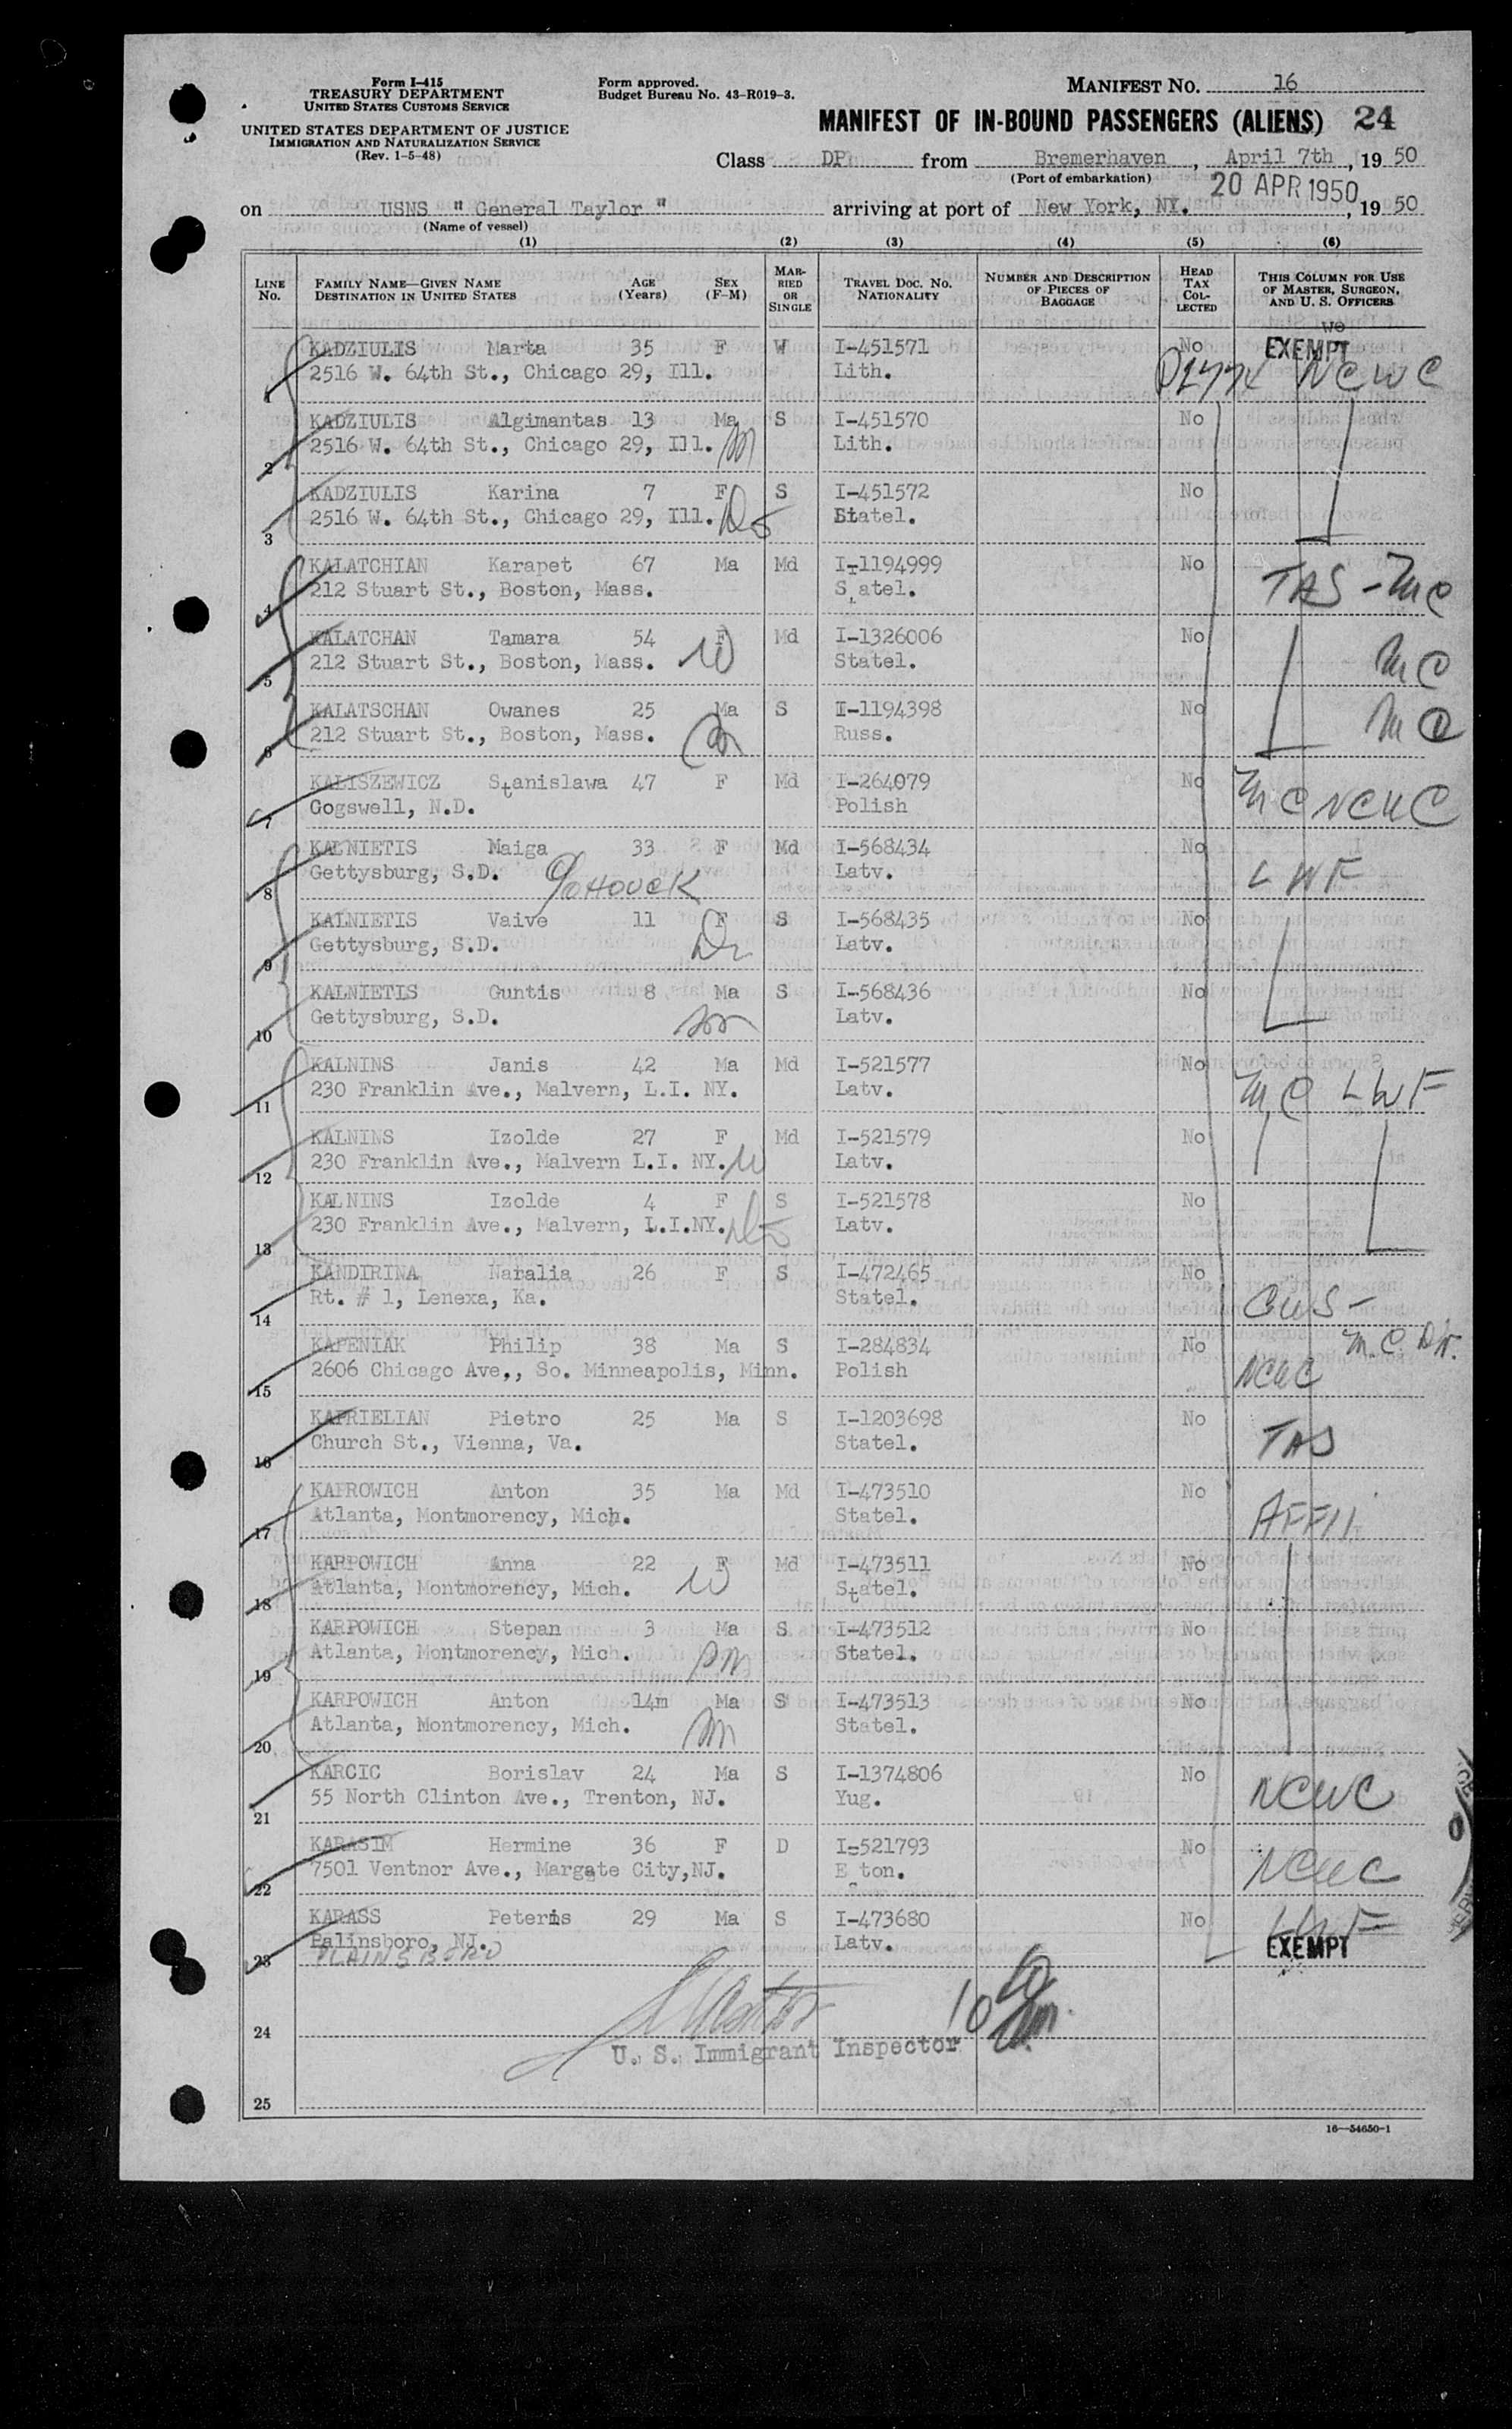 Form I-415
TREASURY DEPARTMENT
UNITED STATES CUSTOMS SERVICE
UNITED STATES DEPARTMENT OF JUSTICE
IMMIGRATION AND NATURALIZATION SERVICE
(Rev. 1-5-48)
Form approved.
Budget Bureau No. 43-R019-3.
MANIFEST NO. 16
MANIFEST OF IN-BOUND PASSENGERS (ALIENS) 24
Class DP from Bremerhaven, April 7th, 19 50
(Port of embarkation)
20 APR 1950
on USNS " General Taylor " arriving at port of New York, NY. , 19 50
(Name of vessel)
(1) (2) (3) (4) (5) (6)
LINE NO. FAMILY NAME—GIVEN NAME DESTINATION IN UNITED STATES AGE (YEARS) SEX (F-M) MARRIED OR SINGLE TRAVEL DOC. NO. NATIONALITY NUMBER AND DESCRIPTION OF PIECES OF BAGGAGE HEAD TAX COLLECTED THIS COLUMN FOR USE OF MASTER, SURGEON, AND U. S. OFFICERS
KADZIULIS Marta 35 F W I-451571 No EXEMPT
1 2516 W. 64th St., Chicago 29, Ill. Lith. NCWC
KADZIULIS Algimantas 13 Ma S I-451570 No
2 2516 W. 64th St., Chicago 29, Ill. Lith.
KADZIULIS Karina 7 F S I-451572 No
3 2516 W. 64th St., Chicago 29, Ill. Statel.
KALATCHIAN Karapet 67 Ma Md I-1194999 No
4 212 Stuart St., Boston, Mass. Statel. TAS - MC
KALATCHAN Tamara 54 F Md I-1326006 No
5 212 Stuart St., Boston, Mass. W Statel. MC
KALATSCHAN Owanes 25 Ma S I-1194398 No
6 212 Stuart St., Boston, Mass. Russ. MC
KALISZEWICZ Stanislawa 47 F Md I-264079 No
7 Gogswell, N.D. Polish MC NCWC
KALNIETIS Maiga 33 F Md I-568434 No
8 Gettysburg, S.D. % HOUCK Latv. LWF
KALNIETIS Vaive 11 F S I-568435 No
9 Gettysburg, S.D. Latv.
KALNIETIS Guntis 8 Ma S I-568436 No
10 Gettysburg, S.D. Latv.
KALNINS Janis 42 Ma Md I-521577 No
11 230 Franklin Ave., Malvern, L.I. NY. Latv. MC LWF
KALNINS Izolde 27 F Md I-521579 No
12 230 Franklin Ave., Malvern L.I. NY. W Latv.
KALNINS Izolde 4 F S I-521578 No
13 230 Franklin Ave., Malvern, L.I.NY. Latv.
KANDIRINA Naralia 26 F S I-472465 No
14 Rt. # 1, Lenexa, Ka. Statel. CWS -
KAPENIAK Philip 38 Ma S I-284834 No M.C.
15 2606 Chicago Ave,, So. Minneapolis, Minn. Polish NCWC
KAPRIELIAN Pietro 25 Ma S I-1203698 No
16 Church St., Vienna, Va. Statel. TAS
KAPROWICH Anton 35 Ma Md I-473510 No
17 Atlanta, Montmorency, Mich. Statel.
KARPOWICH Anna 22 F Md I-473511 No
18 Atlanta, Montmorency, Mich. W Statel.
KARPOWICH Stepan 3 Ma S I-473512 No
19 Atlanta, Montmorency, Mich. Statel.
KARPOWICH Anton 14m Ma S I-473513 No
20 Atlanta, Montmorency, Mich. Statel.
KARCIC Borislav 24 Ma S I-1374806 No
21 55 North Clinton Ave., Trenton, NJ. Yug. NCWC
KARASIM Hermine 36 F D I-521793 No
22 7501 Ventnor Ave., Margate City,NJ. Eston. NCWC
KARASS Peteris 29 Ma S I-473680 No LWF
Palinsboro, NJ. Latv. EXEMPT
23 PLAINSBORO
24
U. S. Immigrant Inspector
25
16—54650-1